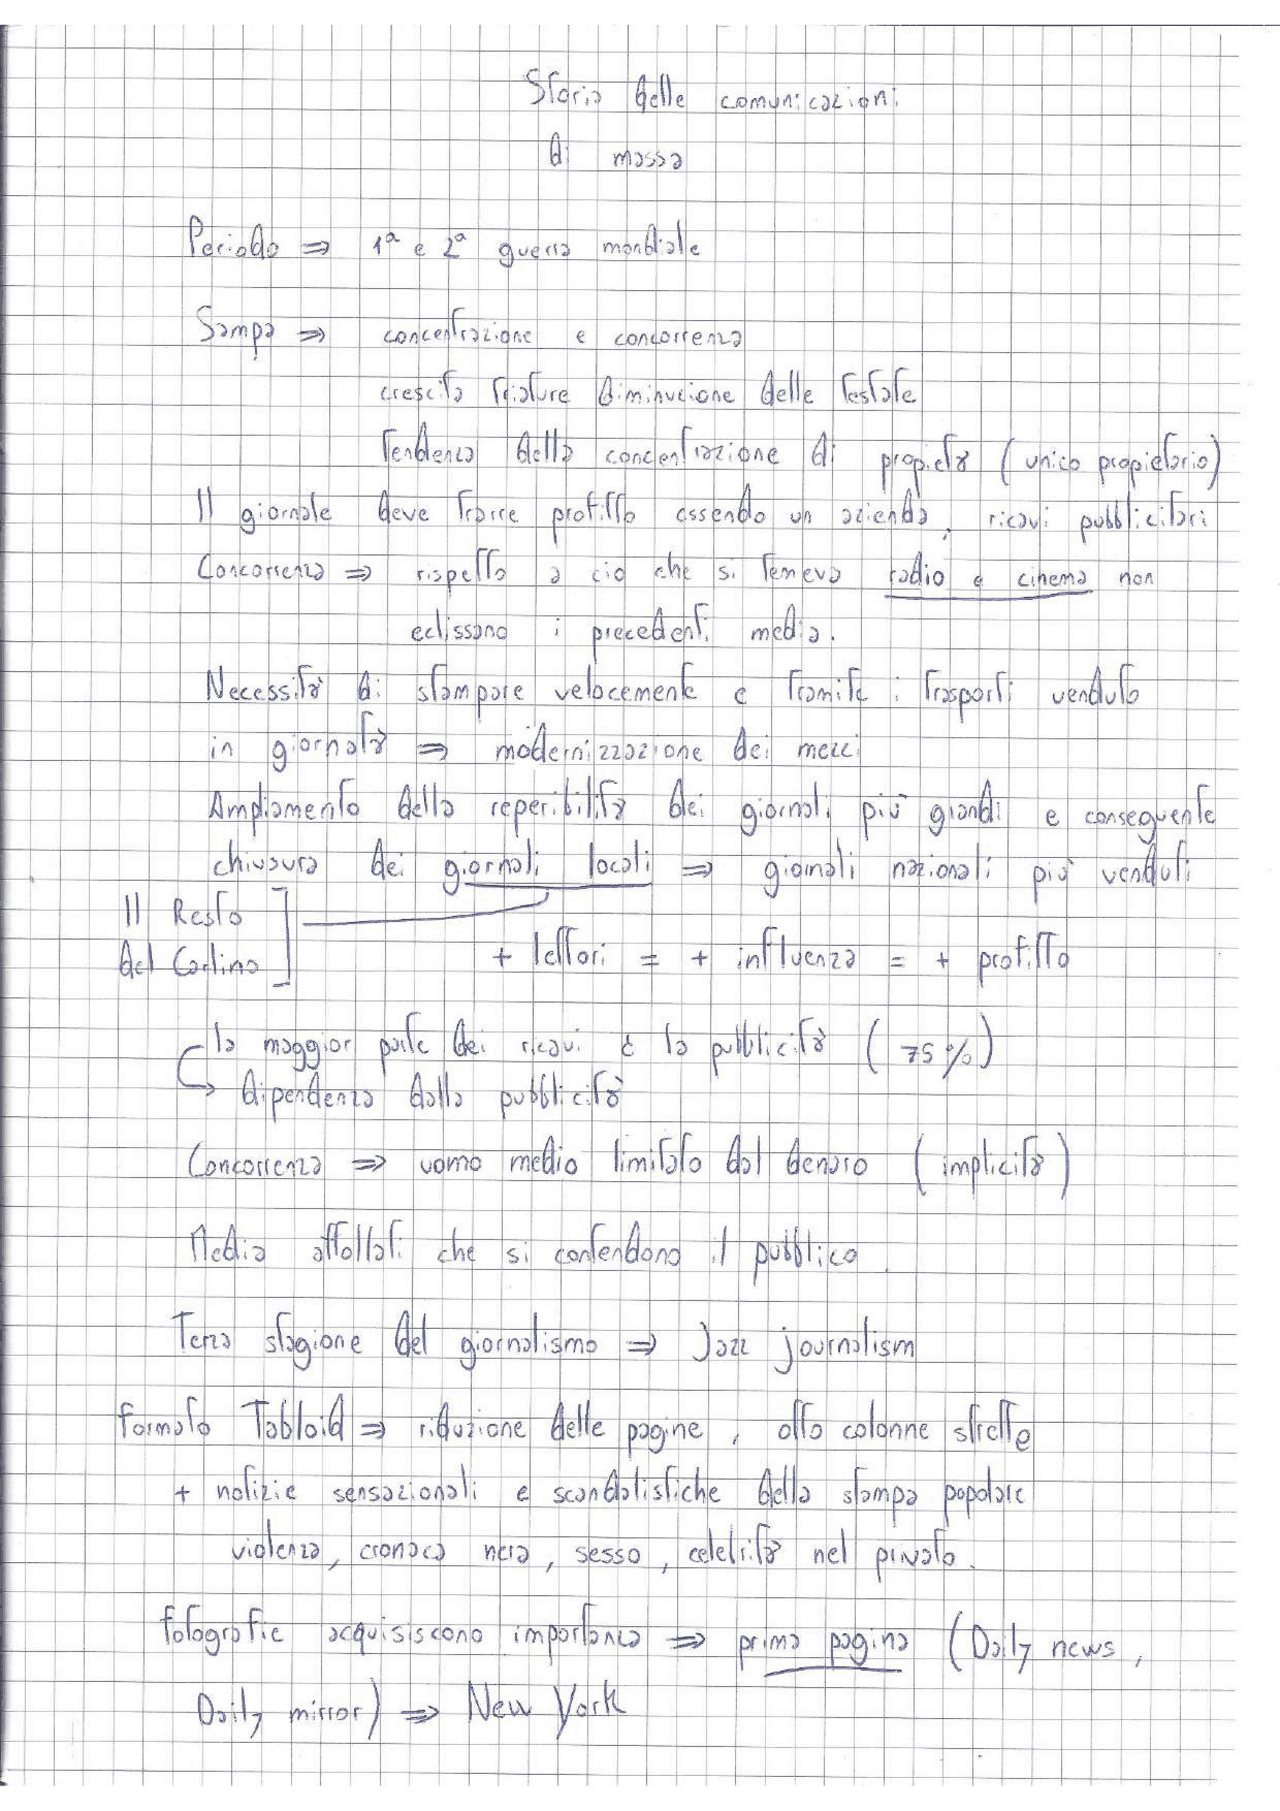 Storia delle comunicazioni
di massa
Periodo ⇒ 1ª e 2ª guerra mondiale
Sampa ⇒ concentrazione e concorrenza
crescita triature diminuzione delle testate
Tendenza della concentrazione di propietà (unico propietario)
Il giornale deve trarre profitto essendo un azienda, ricavi pubblicitari
Concorrenza ⇒ rispetto a cio che si temeva radio e cinema non
eclissano i precedenti media.
Necessità di stampare velocemente e tramite i trasporti venduto
in giornata ⇒ modernizzazione dei mezzi
Ampliamento della reperibilità dei giornali più grandi e conseguente
chiusura dei giornali locali ⇒ giornali nazionali più venduti
Il Resto
del Carlino
+ lettori = + influenza = + profitto
la maggior parte dei ricavi è la pubblicità (75%)
dipendenza dalla pubblicità
Concorrenza ⇒ uomo medio limitato dal denaro (implicità)
Media affollati che si contendono il pubblico.
Terza stagione del giornalismo ⇒ Jazz journalism
Formato Tabloid ⇒ riduzione delle pagine, otto colonne strette
+ notizie sensazionali e scandalistiche della stampa popolare
violenza, cronaca nera, sesso, celebrità nel privato.
Fotografie acquisiscono importanza ⇒ prima pagina (Daily news,
Daily mirror) ⇒ New York